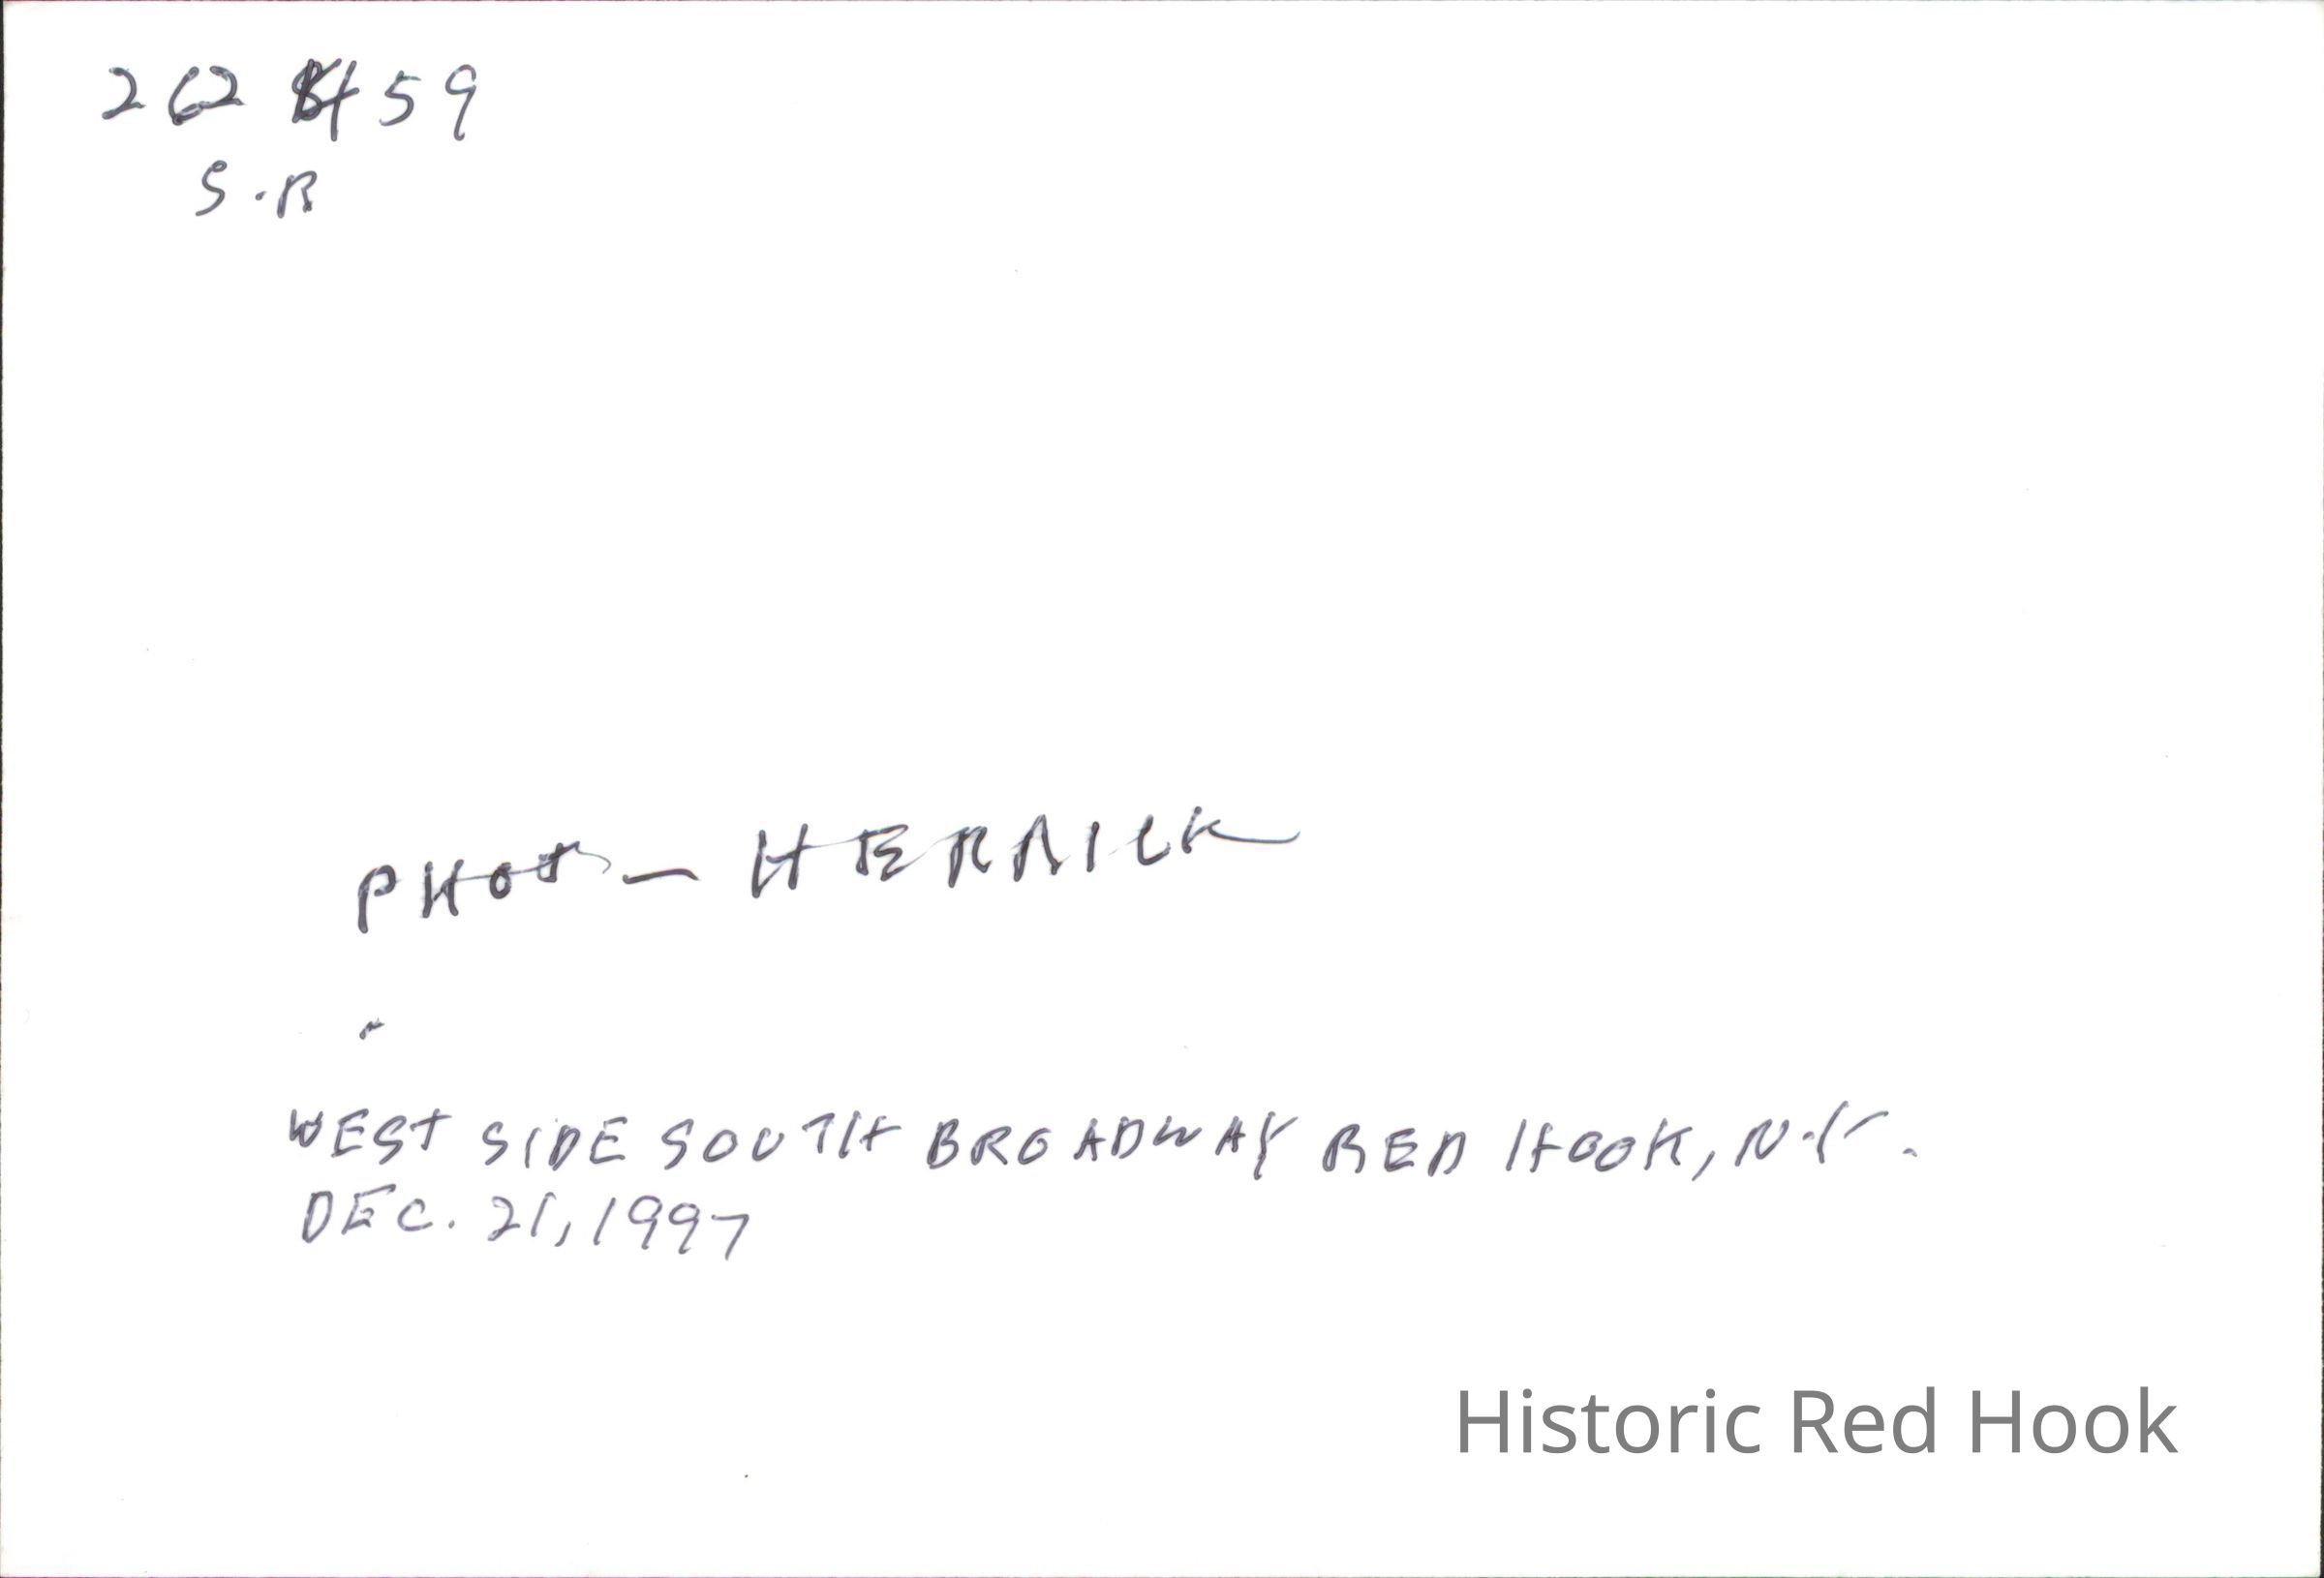 262 459
S.R
PHOT- HERRICK
WEST SIDE SOUTH BROADWAY RED HOOK, N.Y.
DEC. 21, 1997
Historic Red Hook